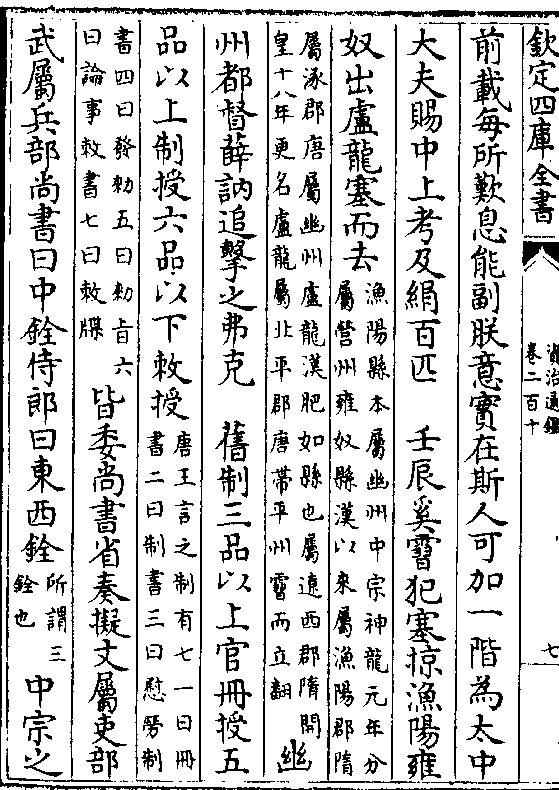 欽定四庫全書
資治通鑑
卷二百十
七
前載每所歎息能副朕意實在斯人可加一階為太中
大夫賜中上考及絹百匹　壬辰奚霫犯塞掠漁陽雍
奴出盧龍塞而去
漁陽縣本屬幽州中宗神龍元年分
屬營州雍奴縣漢以來屬漁陽郡隋
屬涿郡唐屬幽州盧龍漢肥如縣也屬遼西郡隋開
皇十八年更名盧龍屬北平郡唐帶平州霫而立翻
幽
州都督薛訥追擊之弗克　舊制三品以上官冊授五
品以上制授六品以下敕授
唐王言之制有七一曰冊
書二曰制書三曰慰勞制
書四曰發勅五曰勅旨六
曰論事敕書七曰敕牒
皆委尚書省奏擬文屬吏部
武屬兵部尚書曰中銓侍郎曰東西銓
所謂三
銓也
中宗之